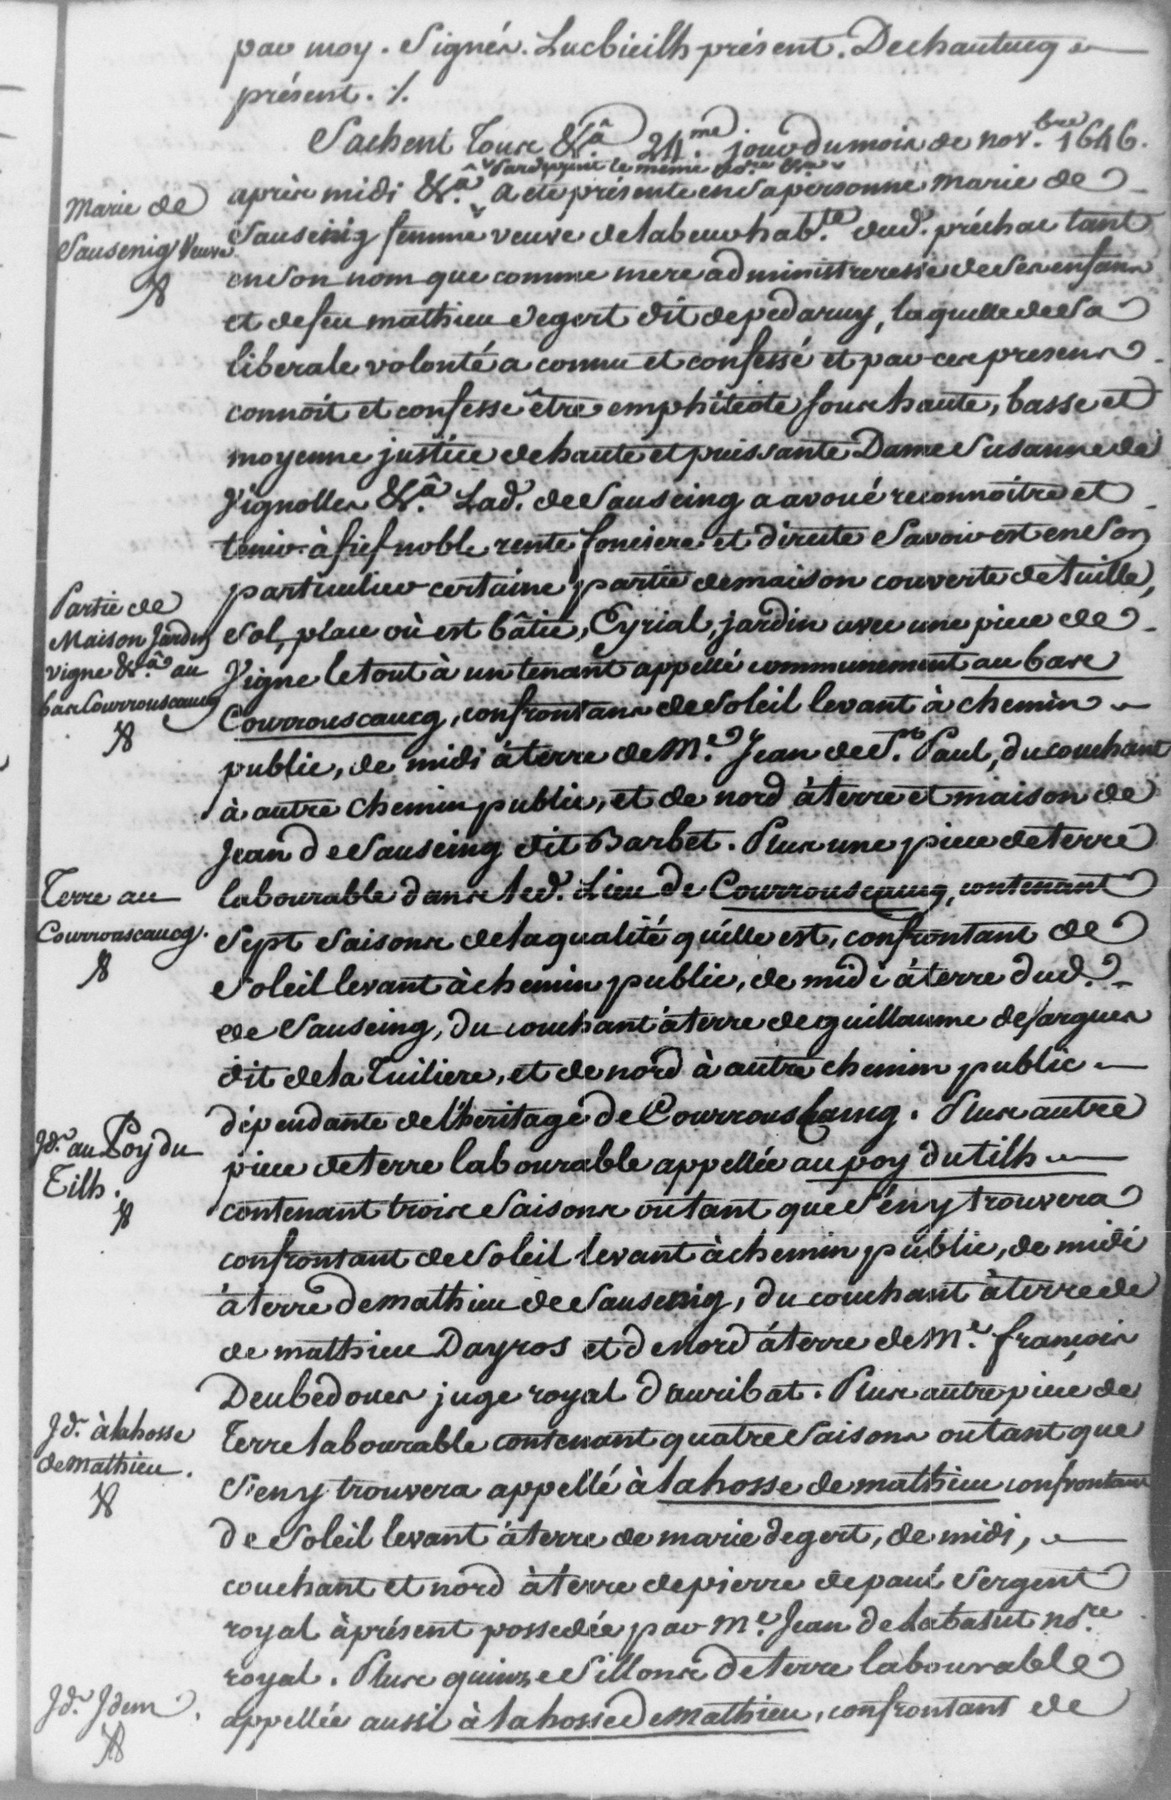 par moy. Signés. Lucbieilh présent. Dechautucq
présent. ./.
Sachent Tous &.ª 24.me jour du mois de nov.bre 1646.
pard.t le même no.re &.ª
après midi &.ª A été présente en sa personne marie de
Marie de
Sausenig Veuve
Sausenig femme veuve de labeur hab.te dud. préchac tant
en son nom que comme mere administreresse de ses enfans
et de feu mathieu degert dit de pedarny, laquelle de sa
liberale volonté a connu et confessé et par ces presens
connoit et confesse être emphiteote sous haute, basse et
moyenne justice de haute et puissante Dame Susanne de
Vignolles &.ª Lad. de Sauseing a avoué reconnoitre et
tenir à fief noble rente fonciere et directe savoir est en son
particulier certaine partie de maison couverte de tuille,
Partie de
Maison Jardin
vigne &.ª au
bas Courrouscaucq
sol, place où est bâtie, Cyrial, jardin avec une piece de
Vigne le tout à un tenant appellé communement au bas
Courrouscaucq, confrontans de soleil levant à chemin
public, de midi à terre de M.e Jean de S.t Paul, du couchant
à autre chemin public, et de nord à terre et maison de
Jean de Sauseing dit Barbet. Plus une piece de terre
Terre au
Courrouscaucq.
labourable dans led. Lieu de Courrouscaucq, contenant
sept saisons de la qualité qu'elle est, confrontant de
soleil levant à chemin public, de midi à terre dud.
de Sauseing, du couchant à terre de guillaume desarques
dit de la Tuiliere, et de nord à autre chemin public
dépendante de l'heritage de Courrouscaucq. Plus autre
Jd. au Poy du
Tilh.
piece de terre labourable appellée au poy du tilh
contenant trois saisons ou tant que s'en y trouvera
confrontant de soleil levant à chemin public, de midi
à terre de mathieu de Sausenig, du couchant à terre de
de mathieu Dayros et de nord à terre de M.e françois
Deubedoues juge royal d'auribat. Plus autre piece de
Jd. à lahosse
de mathieu.
Terre labourable contenant quatre saisons ou tant que
s'en y trouvera appellé à lahosse de mathieu confrontant
de soleil levant à terre de marie degert, de midi,
couchant et nord à terre de pierre de paul sergent
royal à présent possedée par M.e Jean de Labatut no.re
royal. Plus quinze sillons de terre labourable
Jd. Jdem.
appellée aussi à lahosse de Mathieu, confrontant de